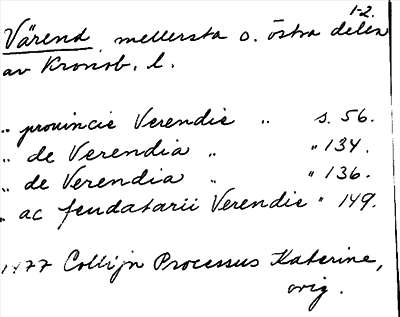 1-2.
Värend, mellersta o. östra delen
av Kronob. l.
„ prouincie Verendie „ s. 56.
„ de Verendia „ „ 134.
„ de Verendia „ „ 136.
„ ac feudatarii Verendie „ 149.
1477 Collijn Processus Katerine,
orig.